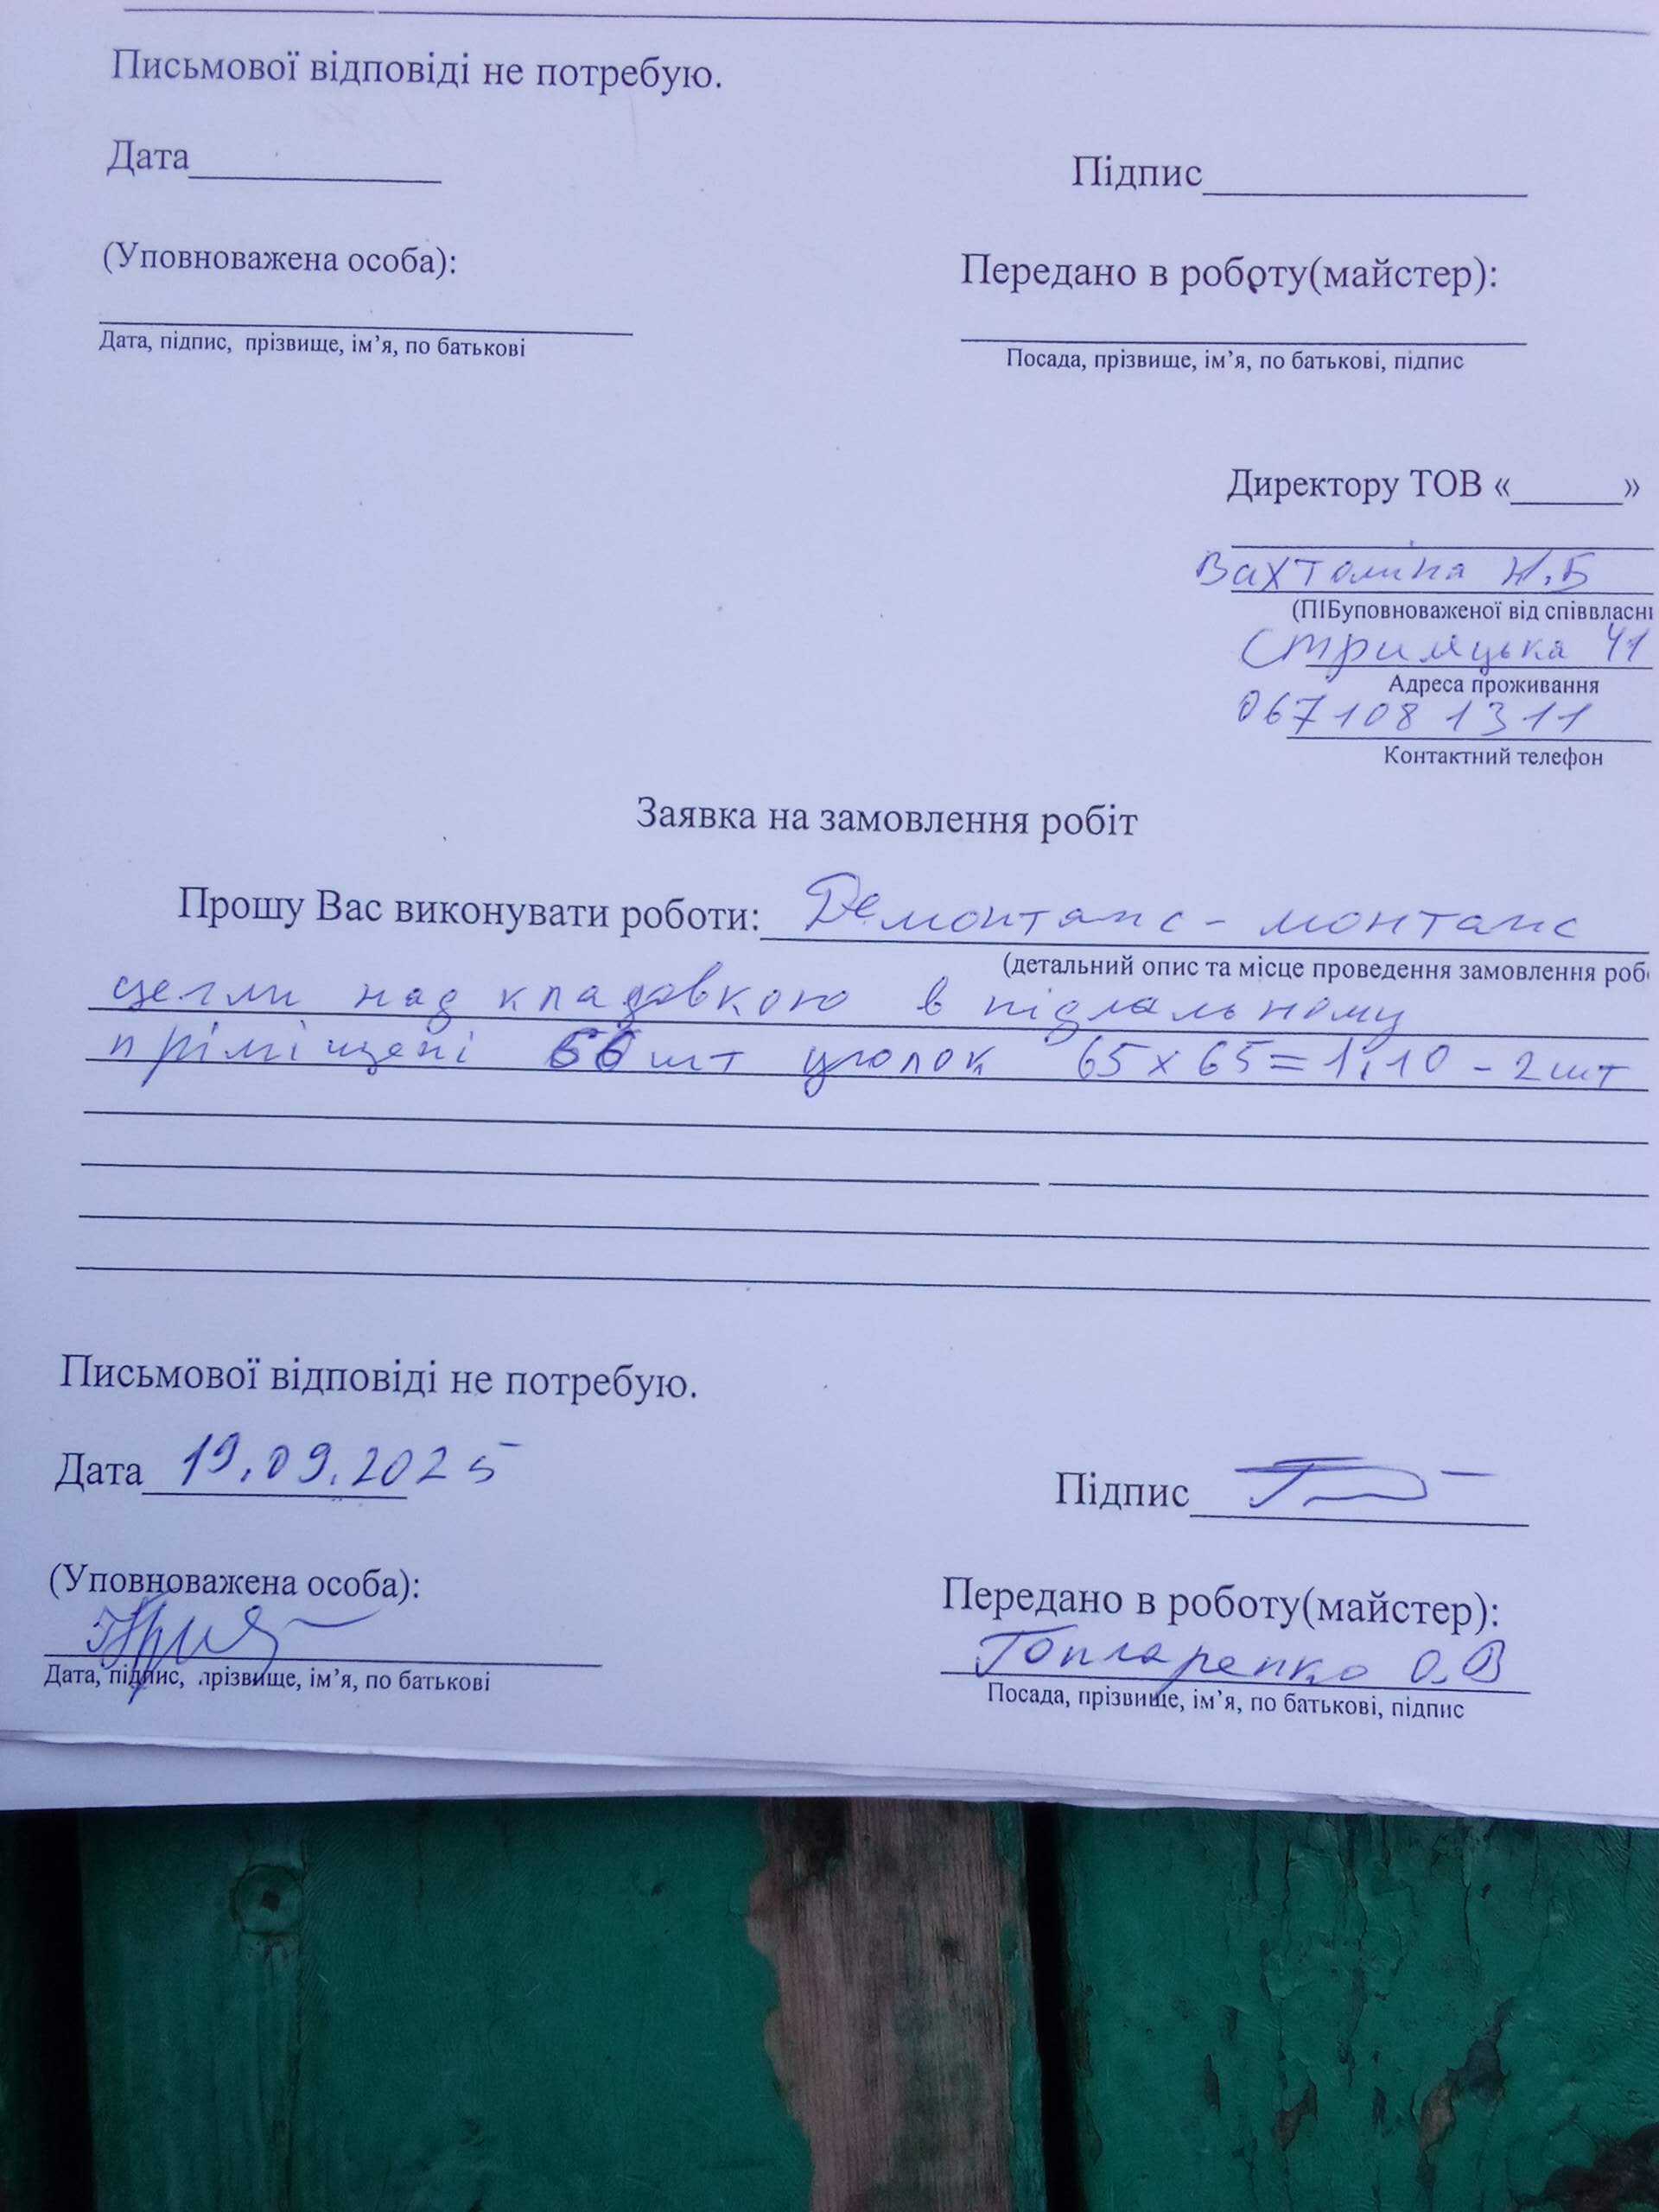 Письмової відповіді не потребую.
Дата____________ Підпис________________
(Уповноважена особа): Передано в роботу(майстер):
Дата, підпис, прізвище, ім’я, по батькові Посада, прізвище, ім’я, по батькові, підпис
Директору ТОВ «______»
Н.Б
(ПІБуповноваженої від співвласн
41
Адреса проживання
0671081311
Контактний телефон
Заявка на замовлення робіт
Прошу Вас виконувати роботи: Демонтаж - монтаж
(детальний опис та місце проведення замовлення роб
цегли над кладовкою в підвальному
приміщені уголок 65х65=1,10 - 2шт
Письмової відповіді не потребую.
Дата 19.09.2025 Підпис
(Уповноважена особа): Передано в роботу(майстер):
Гончаренко О.В
Дата, підпис, прізвище, ім’я, по батькові Посада, прізвище, ім’я, по батькові, підпис